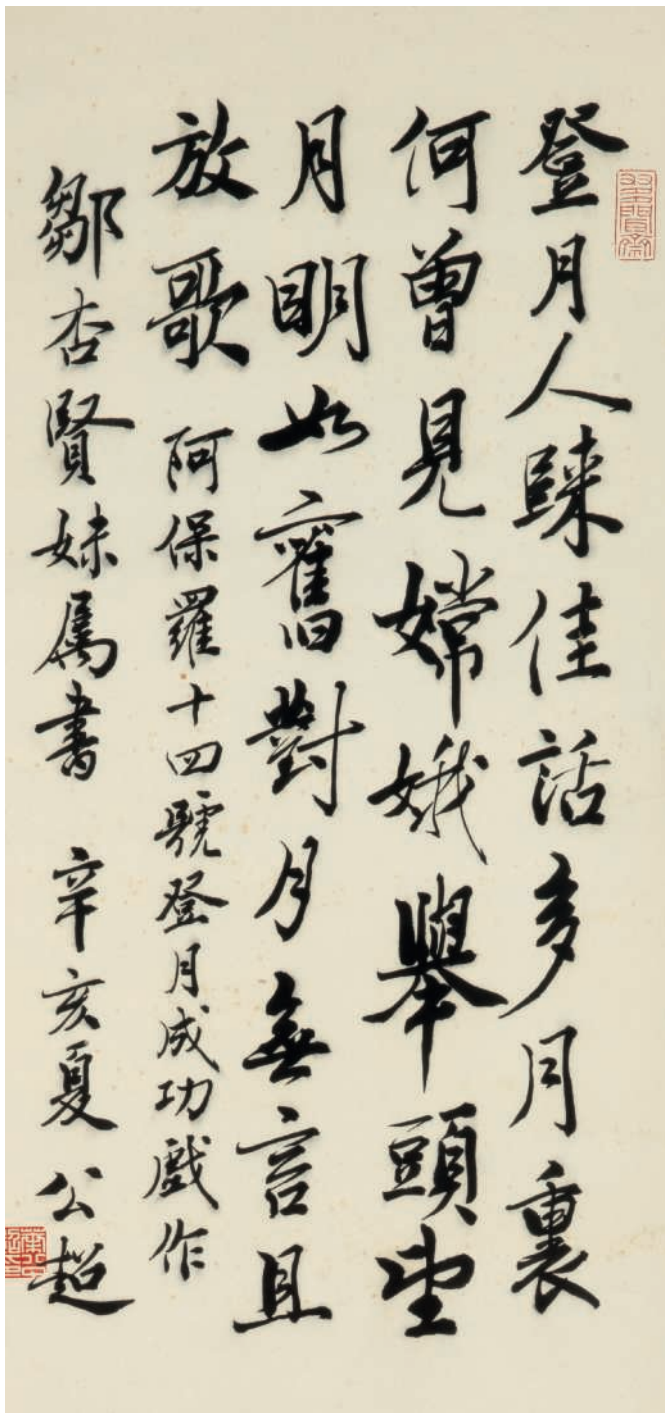 登月人歸佳話多月裏
何曾見嫦娥舉頭望
月明如舊對月無言且
放歌 阿保羅十四號登月成功戲作
鄒杏賢妹属書 辛亥夏 公超